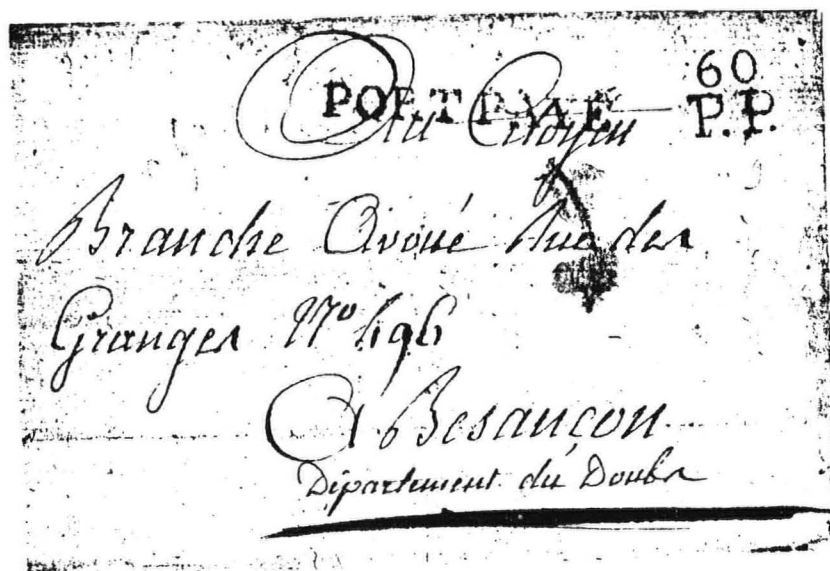 60
PORT PAYE P.P.
Au Citoyen
Branche Avoué Rue des
Granges N° 496
A Besançon
Département du Doubs